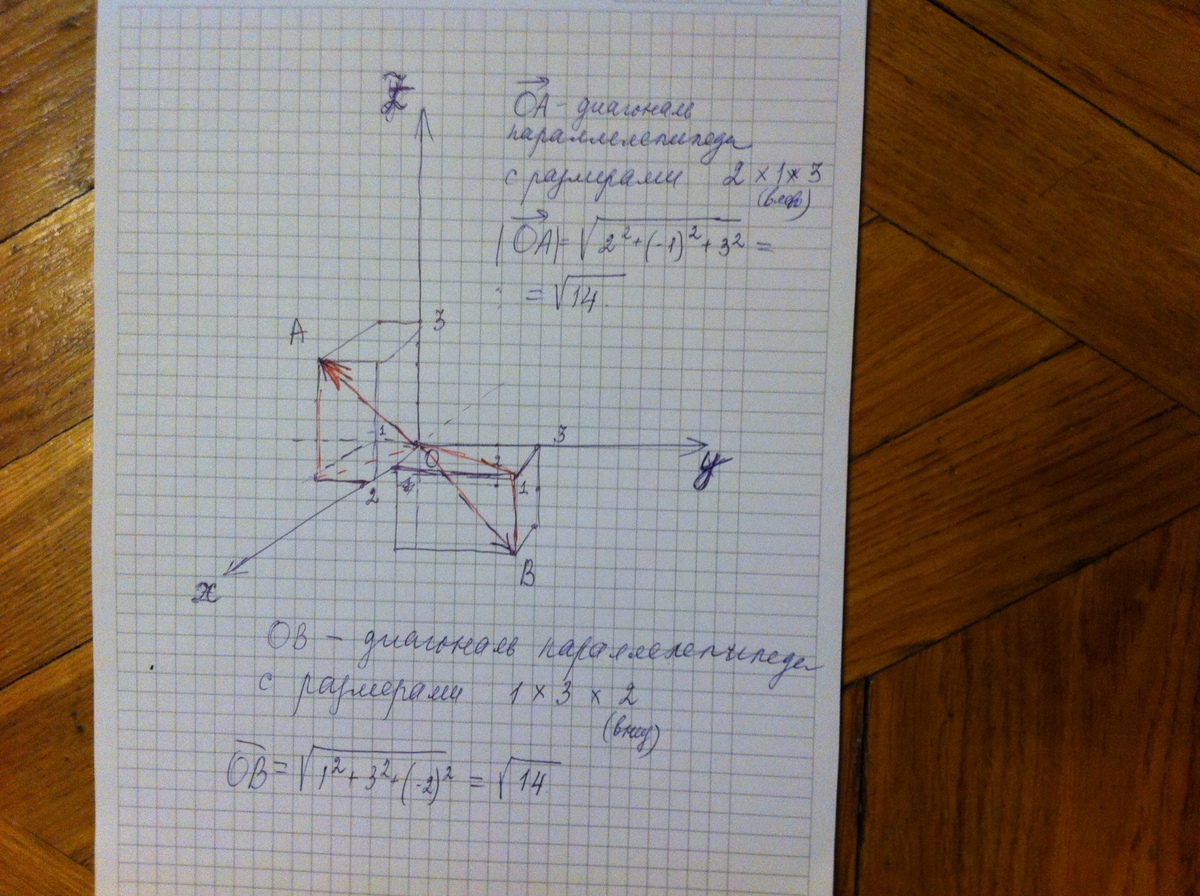 Z
OA - диагональ
параллелепипеда
с размерами 2 × 1 × 3
(влево)
|OA| = √2² + (-1)² + 3² =
= √14
A
3
-1
O
3
y
2
1
x
B
OB - диагональ параллелепипеда
с размерами 1 × 3 × 2
(вниз)
OB = √1² + 3² + (-2)² = √14